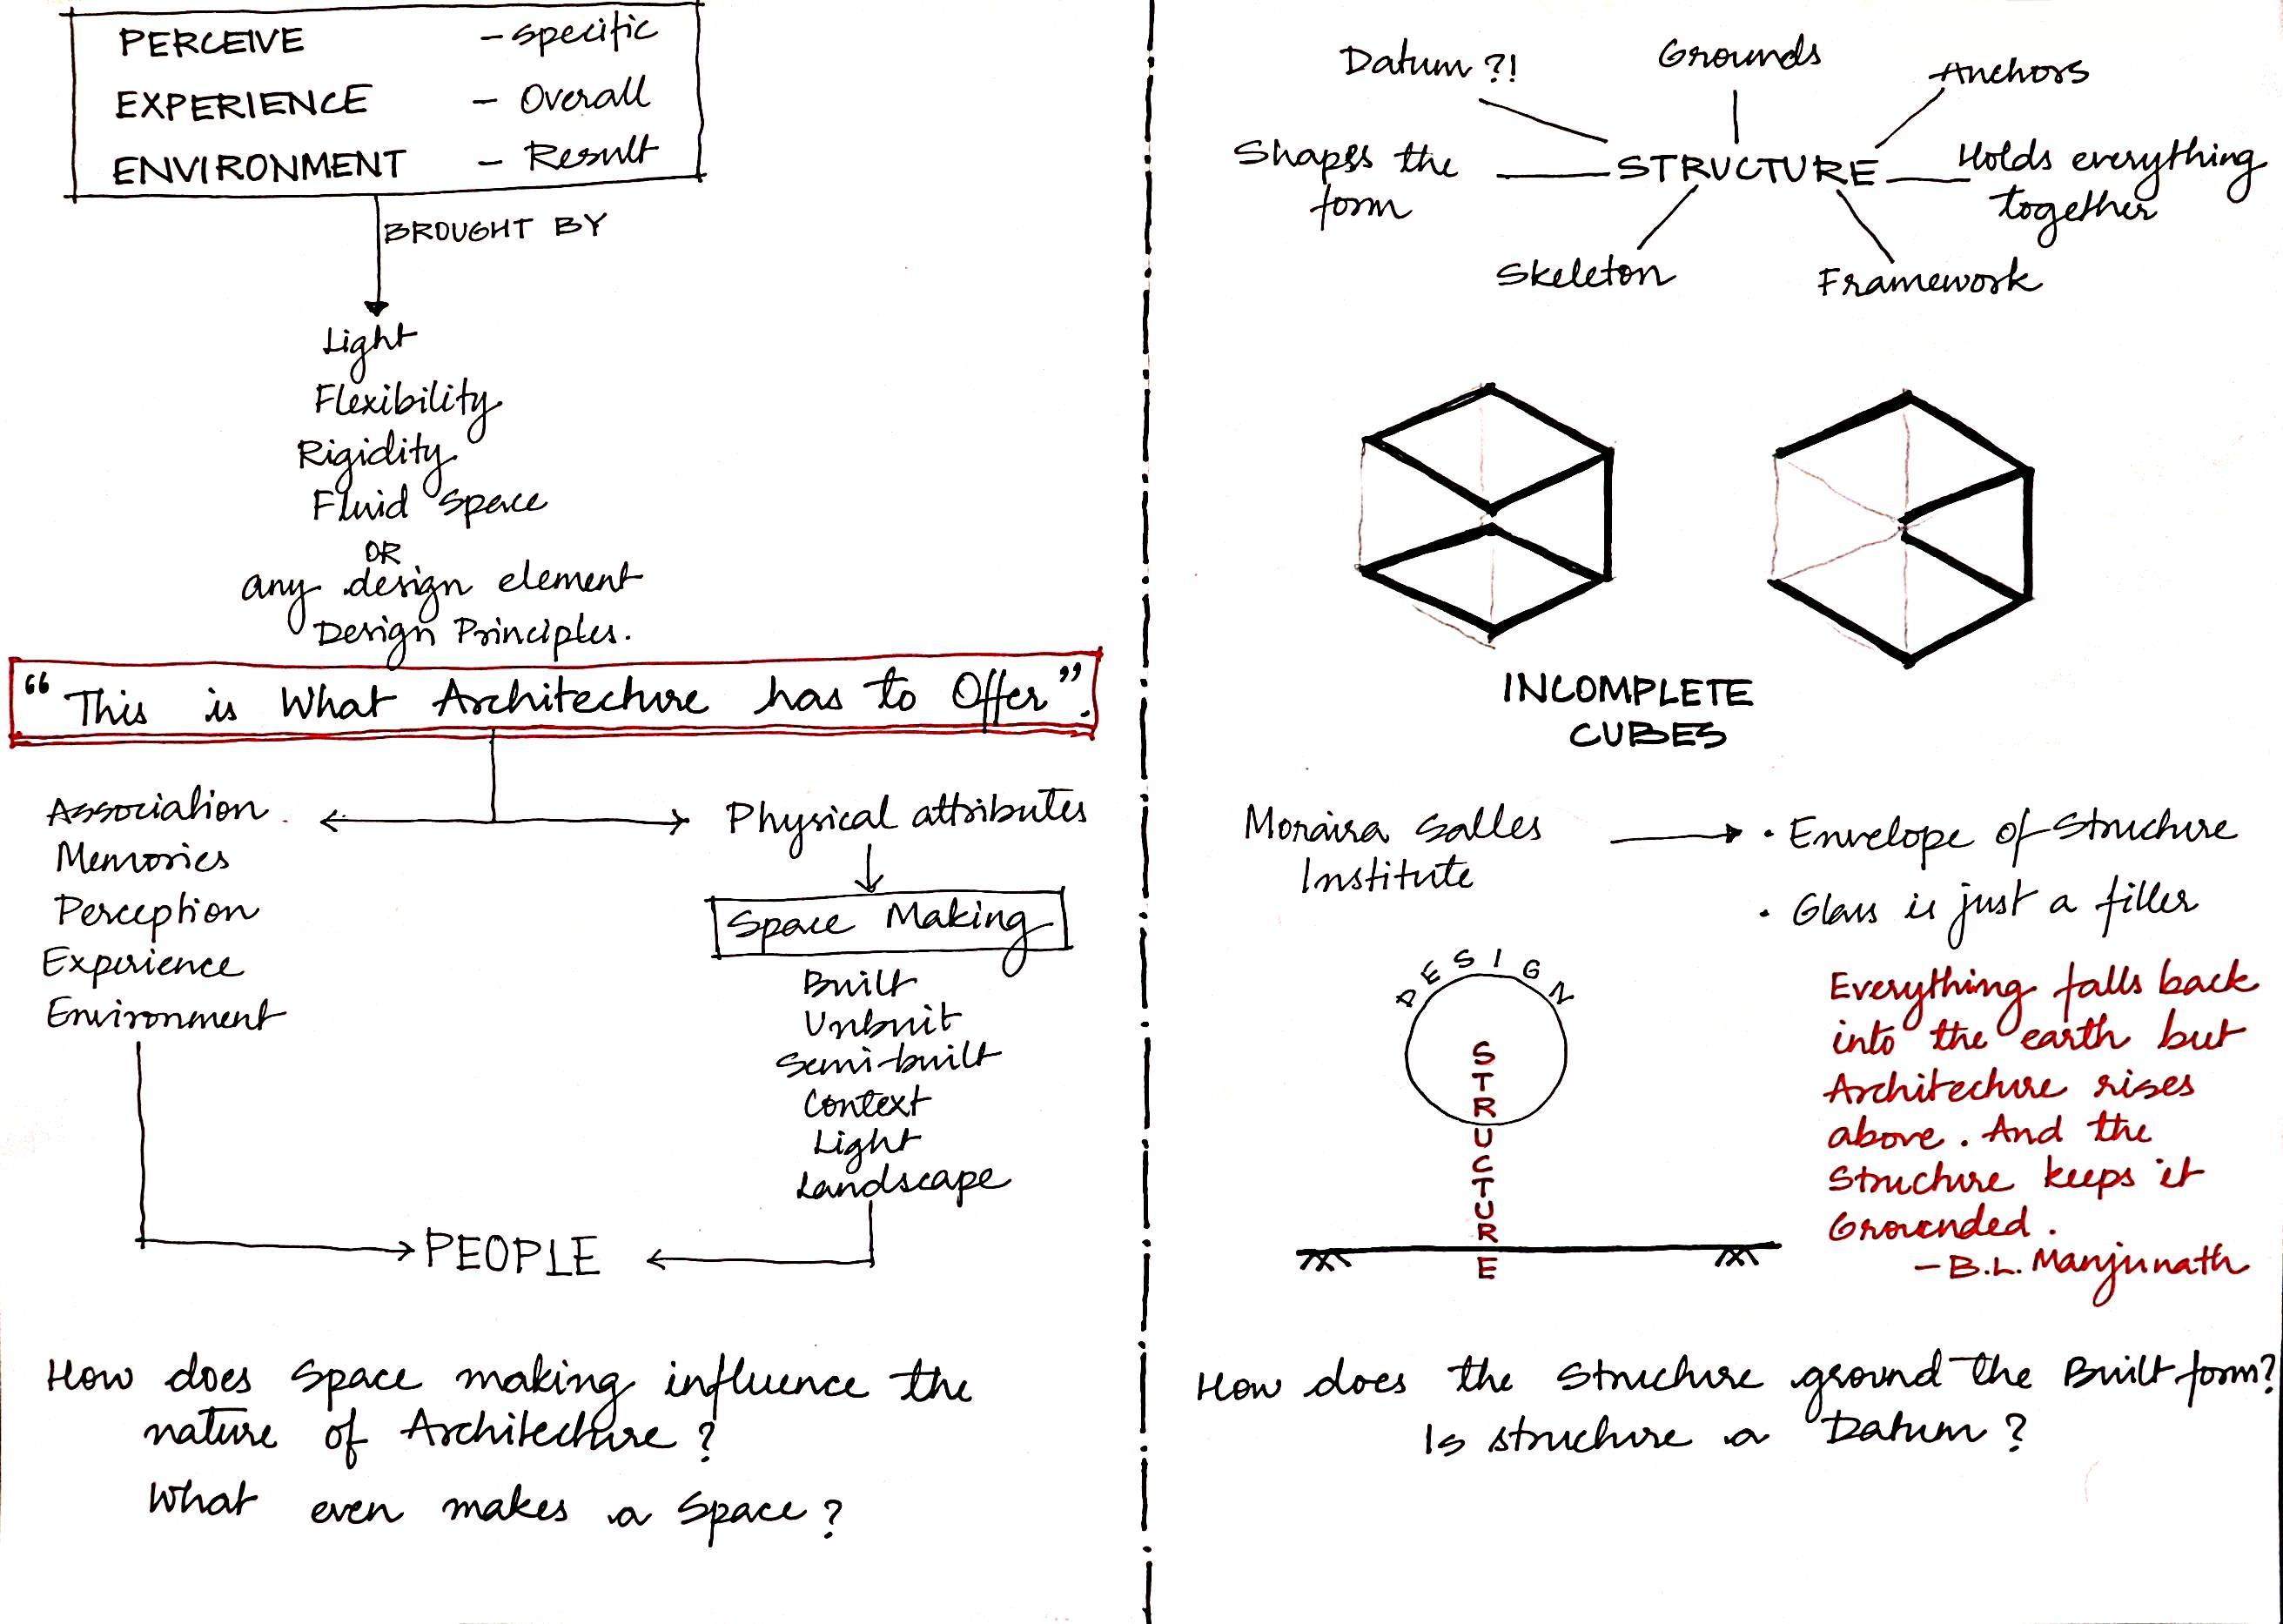 PERCEIVE - Specific
EXPERIENCE - Overall
ENVIRONMENT - Result
BROUGHT BY
Light
Flexibility
Rigidity
Fluid Space
OR
any design element
Design Principles.
“This is What Architecture has to Offer”.
Association
Memories
Perception
Experience
Environment
Physical attributes
Space Making
Built
Unbuit
Semi-built
Context
Light
Landscape
PEOPLE
How does Space making influence the
nature of Architecture?
What even makes a Space?
Datum ?!
Grounds
Anchors
Shapes the
form
STRUCTURE
Holds everything
together
Skeleton
Framework
INCOMPLETE
CUBES
Moraira Salles
Institute
• Envelope of Structure
• Glass is just a filler
DESIGN
STRUCTURE
Everything falls back
into the earth but
Architecture rises
above. And the
Structure keeps it
Grounded.
- B.L. Manjunath
How does the Structure ground the Built form?
Is structure a Datum?